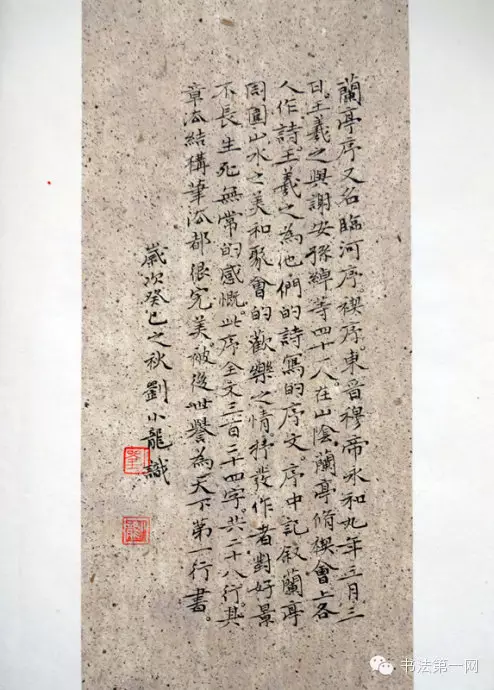 蘭亭序又名臨河序。禊序。東晉穆帝永和九年三月三
日。王羲之與謝安孫綽等四十一人。在山陰蘭亭脩禊會上各
人作詩王羲之為他們的詩寫的序文。序中記叙蘭亭
周圍山水之美和聚會的歡樂之情抒發作者對好景
不長生死無常的感慨。此序全文三百二十四字。共二十八行。其
章法結構筆法都很完美。被後世譽為天下第一行書。
歲次癸巳之秋劉小龍識
书法第一网